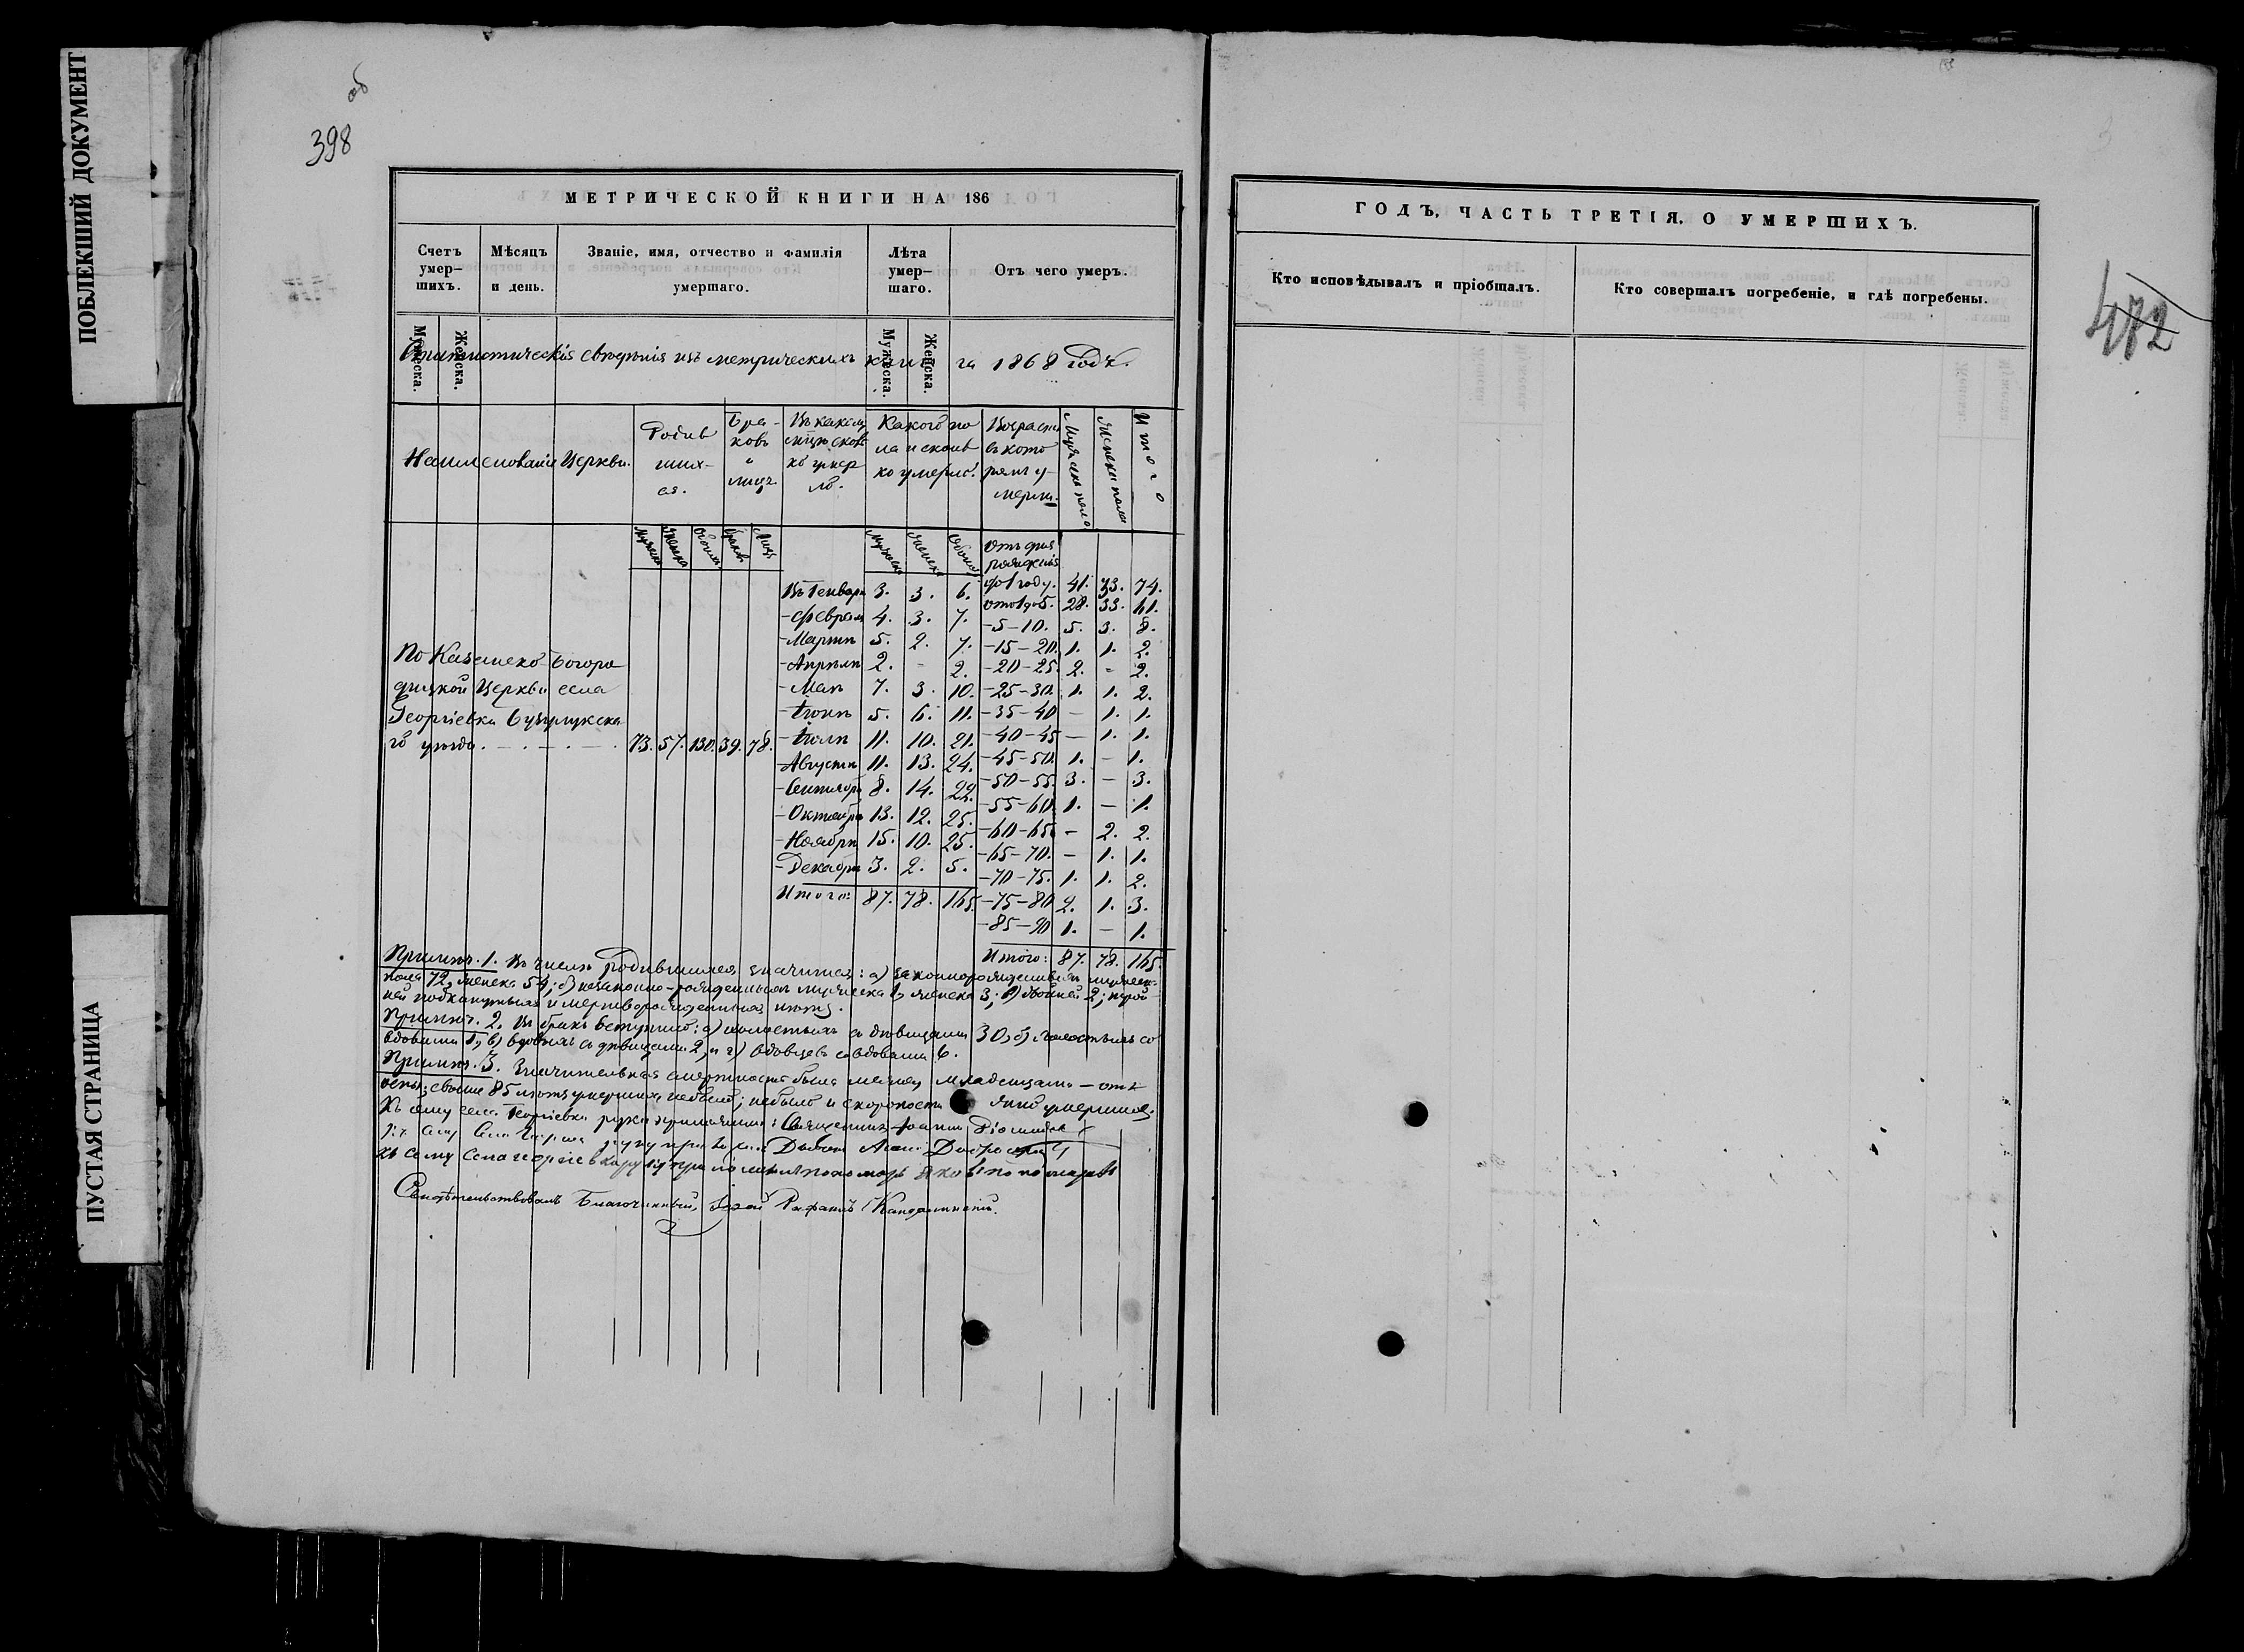 ПОБЛЕКШИЙ ДОКУМЕНТ
ПУСТАЯ СТРАНИЦА
об
398
МЕТРИЧЕСКОЙ КНИГИ НА 186
Счетъ умер-шихъ.
Мѣсяцъ и день.
Званіе, имя, отчество и фамилія умершаго.
Лѣта умер-шаго.
Отъ чего умеръ.
Мужеска.
Женска.
Мужеска.
Женска.
Статистическія свѣдѣнія изъ метрическихъ книгъ за 1868 годъ.
Наименованіе Церкви.
Родив шихся.
Браковъ и лицъ
Въ какомъ мѣсяцѣ сколько умерло.
Какого пола и сколько умерло.
Возрастъ въ которомъ умерли.
Мужеска пола
Женска пола
Итого
Мужеска Женска Обоихъ Браковъ Лицъ
Мужеска Женска Обоихъ
Отъ дня рожденія
до 1 году. 41. 33. 74.
отъ 1 до 5. 28. 33. 61.
- 5 - 10. 5. 3. 8.
- 15 - 20. 1. 1. 2.
- 20 - 25. 2. - 2.
- 25 - 30. 1. 1. 2.
- 35 - 40 - 1. 1.
- 40 - 45 - 1. 1.
- 45 - 50. 1. - 1.
- 50 - 55. 3. - 3.
- 55 - 60. 1. - 1.
- 60 - 65. - 2. 2.
- 65 - 70. - 1. 1.
- 70 - 75. 1. 1. 2.
- 75 - 80 2. 1. 3.
- 85 - 90 1. - 1.
Итого: 87. 78. 165.
Въ Генварѣ 3. 3. 6.
- Февралѣ 4. 3. 7.
- Мартѣ 5. 2. 7.
- Апрѣлѣ 2. - 2.
- Маѣ 7. 3. 10.
- Іюнѣ 5. 6. 11.
- Іюлѣ 11. 10. 21.
- Августѣ 11. 13. 24.
- Сентябрѣ 8. 14. 22.
- Октябрѣ 13. 12. 25.
- Ноябрѣ 15. 10. 25.
- Декабрѣ 3. 2. 5.
Итого: 87. 78. 165.
По Казанско-Богоро
дицкой Церкви села
Георгіевки Бузулукска
го уѣзда. 73. 57. 130. 39. 78.
Примѣч. 1. Въ числѣ родившихся значится: а) законнорожденныхъ мужеска
пола 72, женска 54; б) незаконно-рожденныхъ мужеска 1, женска 3; в) двойней 2; трой
ней подкинутыхъ и мертворожденныхъ нѣтъ.
Примѣч. 2. Въ бракъ вступило: а) холостыхъ съ дѣвицами 30, б) холостыхъ со
вдовами 1, в) вдовыхъ съ дѣвицами 2, и г) вдовцевъ со вдовами 6.
Примѣч. 3. Значительная смертность была между младенцами - отъ
оспы; свыше 85 лѣтъ умершихъ небыло; небыло и скоропости жно умершихъ.
Къ сему села Георгіевки руку приложилъ: Священникъ Іоаннъ
Къ сему села руку приложилъ Дьяконъ
Къ сему села георгіевки руку приложилъ пономарь Яковъ
Свидѣтельствовалъ Благочинный, Іерей
ГОДЪ, ЧАСТЬ ТРЕТІЯ, О УМЕРШИХЪ.
Кто исповѣдывалъ и пріобщалъ.
Кто совершалъ погребеніе, и гдѣ погребены.
472